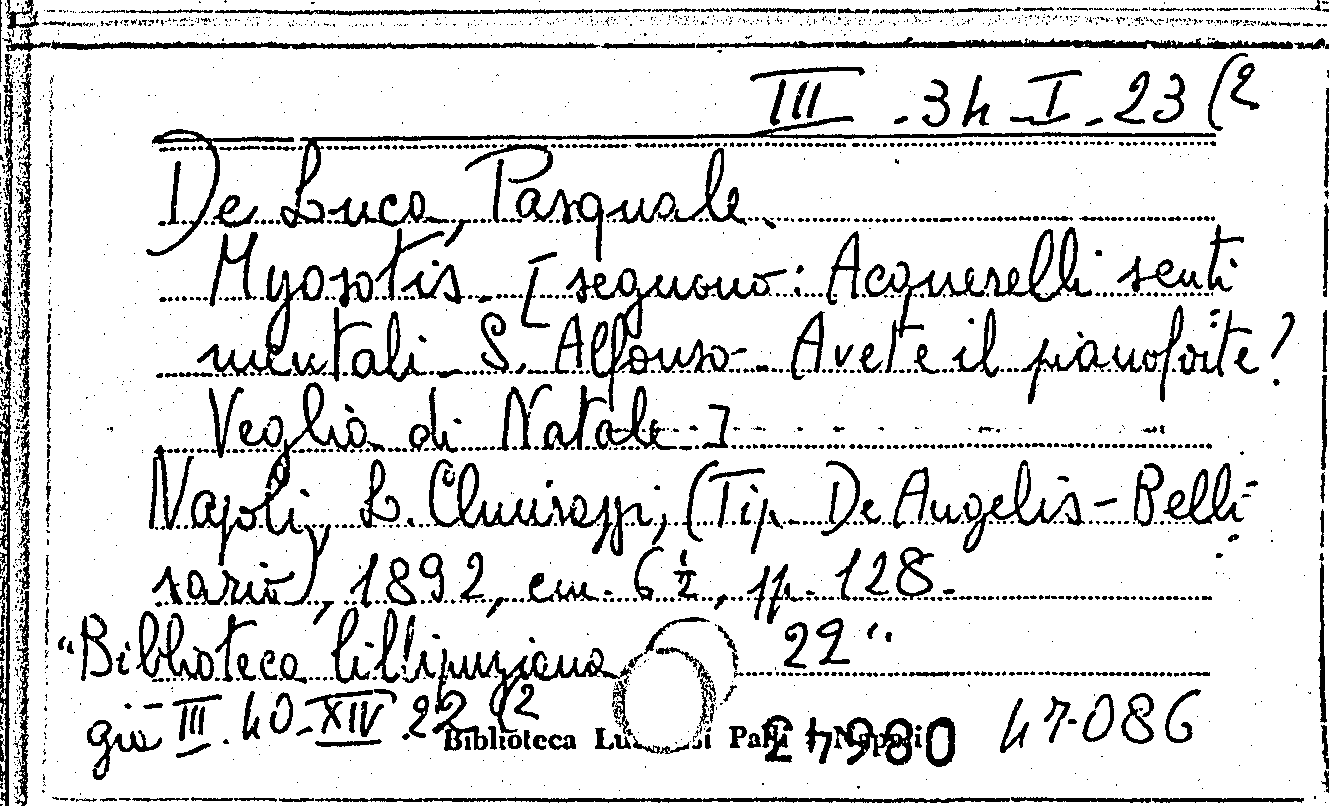 III . 34 - I - 23 (2
De Luca, Pasquale.
Myosotis. [segnono: Acquerelli senti
mentali - S. Alfonso - Avete il pianoforte?
Veglia di Natale.]
Napoli, L. Chiurazzi, (Tip. De Angelis - Belli-
sario), 1892, cm. 6 ½, pp. 128.
"Biblioteca lillipuziana 22".
già III . 40 - XIV 22 (2
Biblioteca Lu si Palli Napoli
47.086